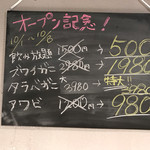 オープン記念!
10/1〜10/8
飲み放題 1500円→500
ズワイガニ 2980→1980
タラバガニ 3980→特大
アワビ 1200円→980